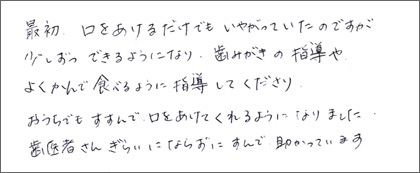 最初、口をあけるだけでもいやがっていたのですが
少しずつできるようになり、歯みがきの指導や
よくかんで食べるように指導してくださり、
おうちでもすすんで口をあけてくれるようになりました。
歯医者さんぎらいにならずにすんで助かっています